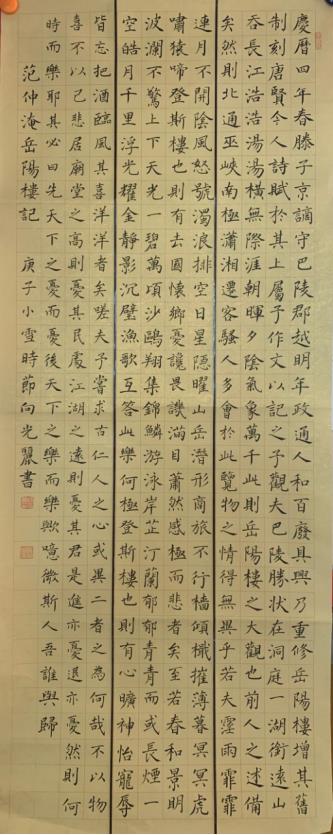 慶曆四年春滕子京謫守巴陵郡越明年政通人和百廢具興乃重修岳陽樓增其舊
制刻唐賢今人詩賦於其上屬予作文以記之予觀夫巴陵勝狀在洞庭一湖銜遠山
吞長江浩浩湯湯橫無際涯朝暉夕陰氣象萬千此則岳陽樓之大觀也前人之述備
矣然則北通巫峽南極瀟湘遷客騷人多會於此覽物之情得無異乎若夫霪雨霏霏
連月不開陰風怒號濁浪排空日星隱曜山岳潛形商旅不行檣傾檝摧薄暮冥冥虎
嘯猿啼登斯樓也則有去國懷鄉憂讒畏譏滿目蕭然感極而悲者矣至若春和景明
波瀾不驚上下天光一碧萬頃沙鷗翔集錦鱗游泳岸芷汀蘭郁郁青青而或長煙一
空皓月千里浮光耀金靜影沉璧漁歌互答此樂何極登斯樓也則有心曠神怡寵辱
皆忘把酒臨風其喜洋洋者矣嗟夫予嘗求古仁人之心或異二者之為何哉不以物
喜不以己悲居廟堂之高則憂其民處江湖之遠則憂其君是進亦憂退亦憂然則何
時而樂耶其必曰先天下之憂而憂後天下之樂而樂歟噫微斯人吾誰與歸
范仲淹岳陽樓記 庚子小雪時節向光麗書